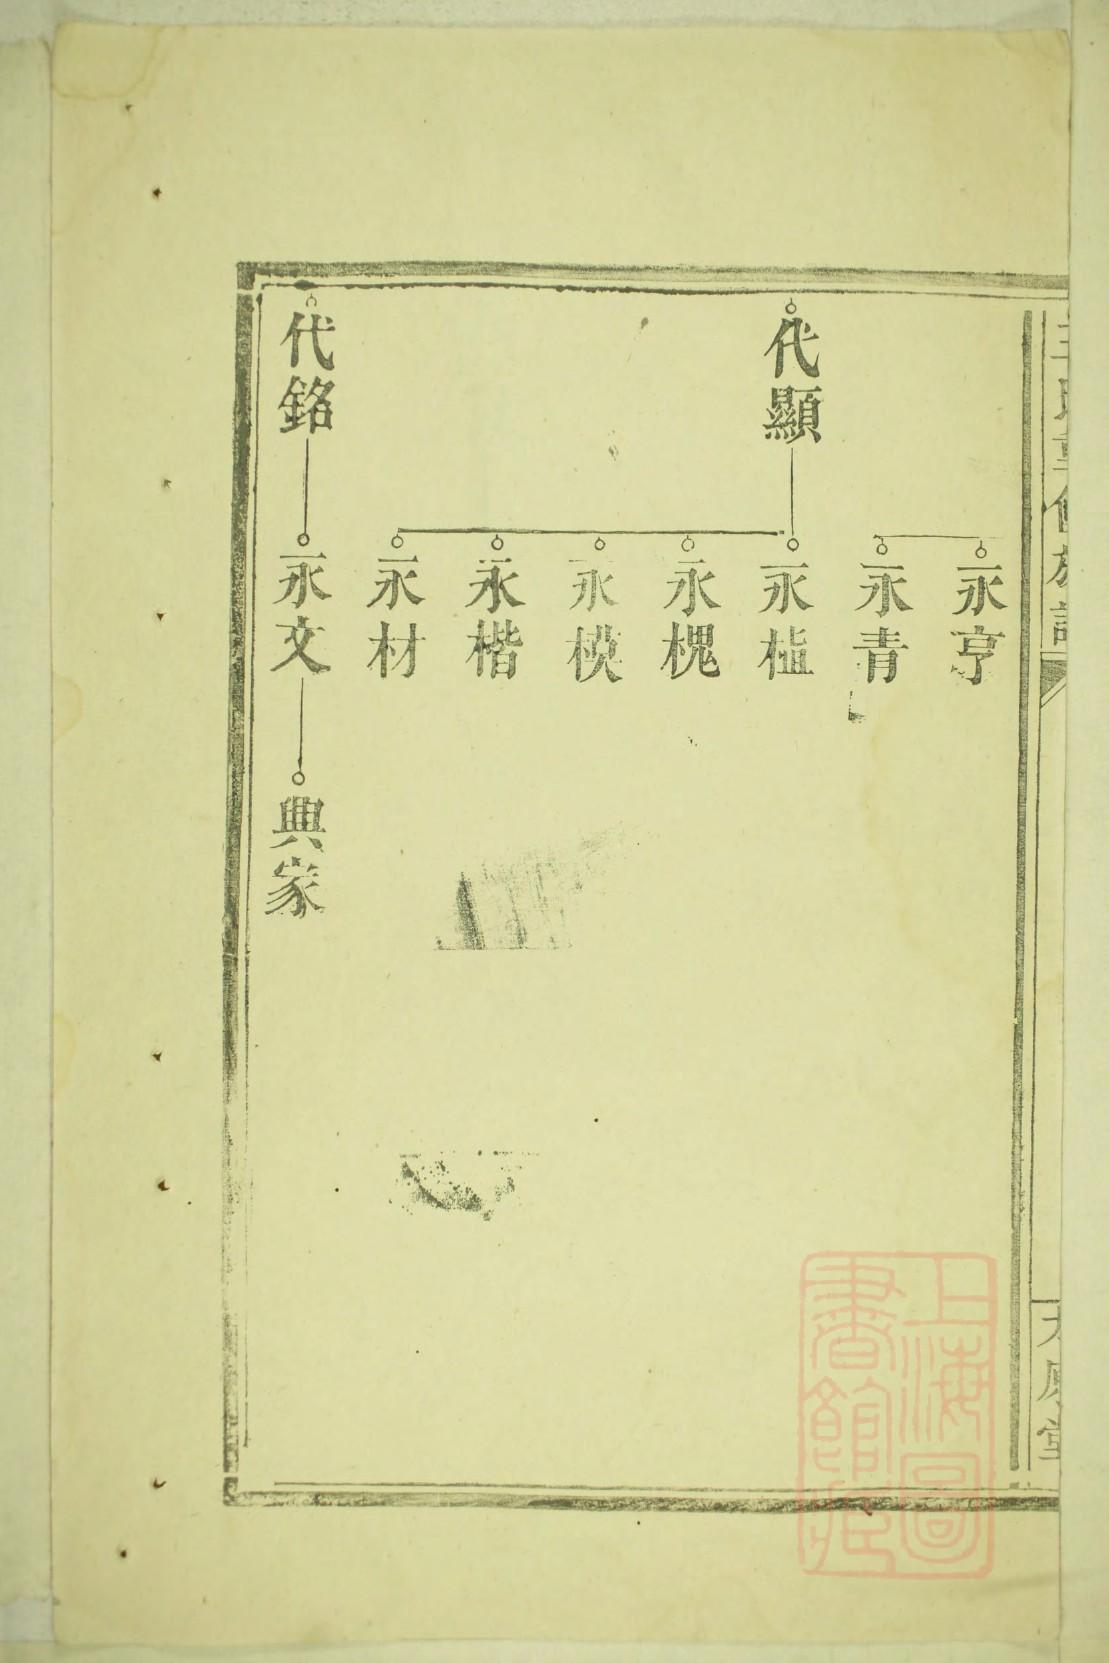 永亨
永青
代顯
永植
永槐
永模
永楷
永材
代銘
永文
典家
上海圖
書館藏